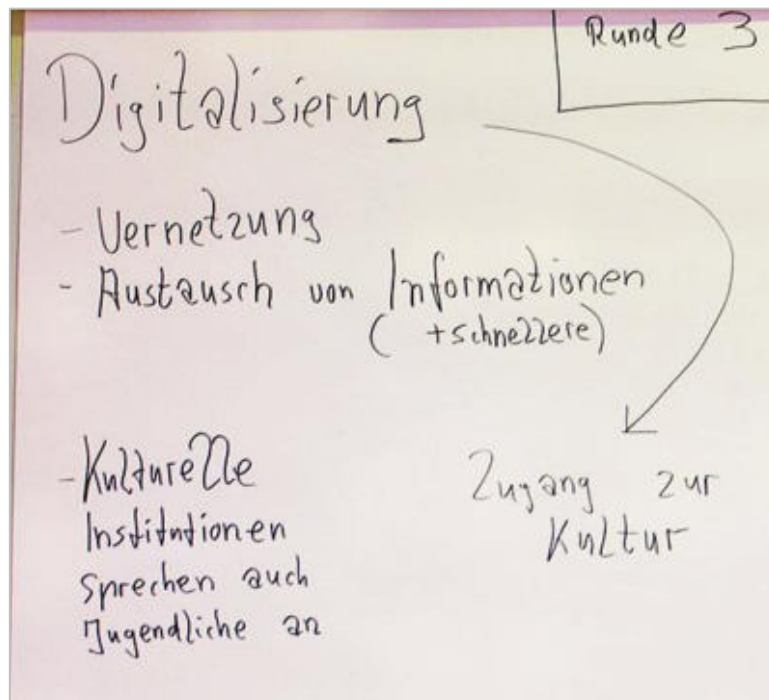 Runde 3
Digitalisierung
- Vernetzung
- Austausch von Informationen
( + schnellere)
- Kulturelle
Institutionen
sprechen auch
Jugendliche an
Zugang zur
Kultur